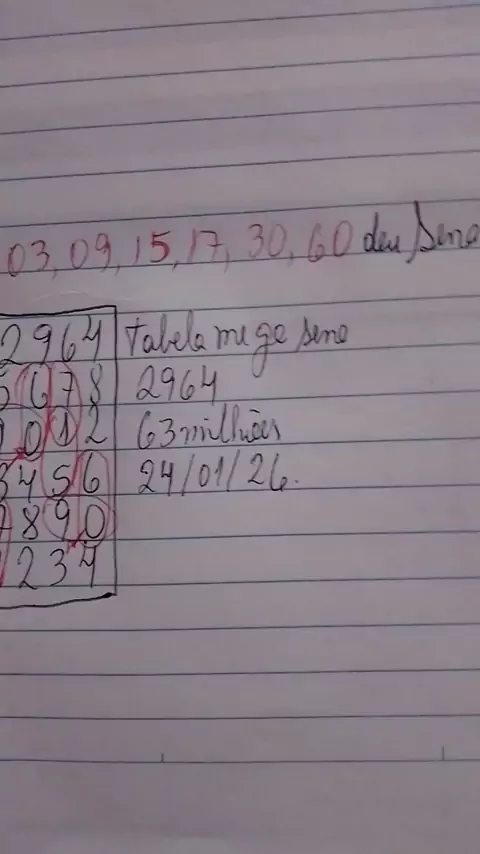 03, 09, 15, 17, 30, 60 deu Sena
2964 Tabela mega sena
5678 2964
9012 63 milhões
3456 24/01/26.
7890
1234